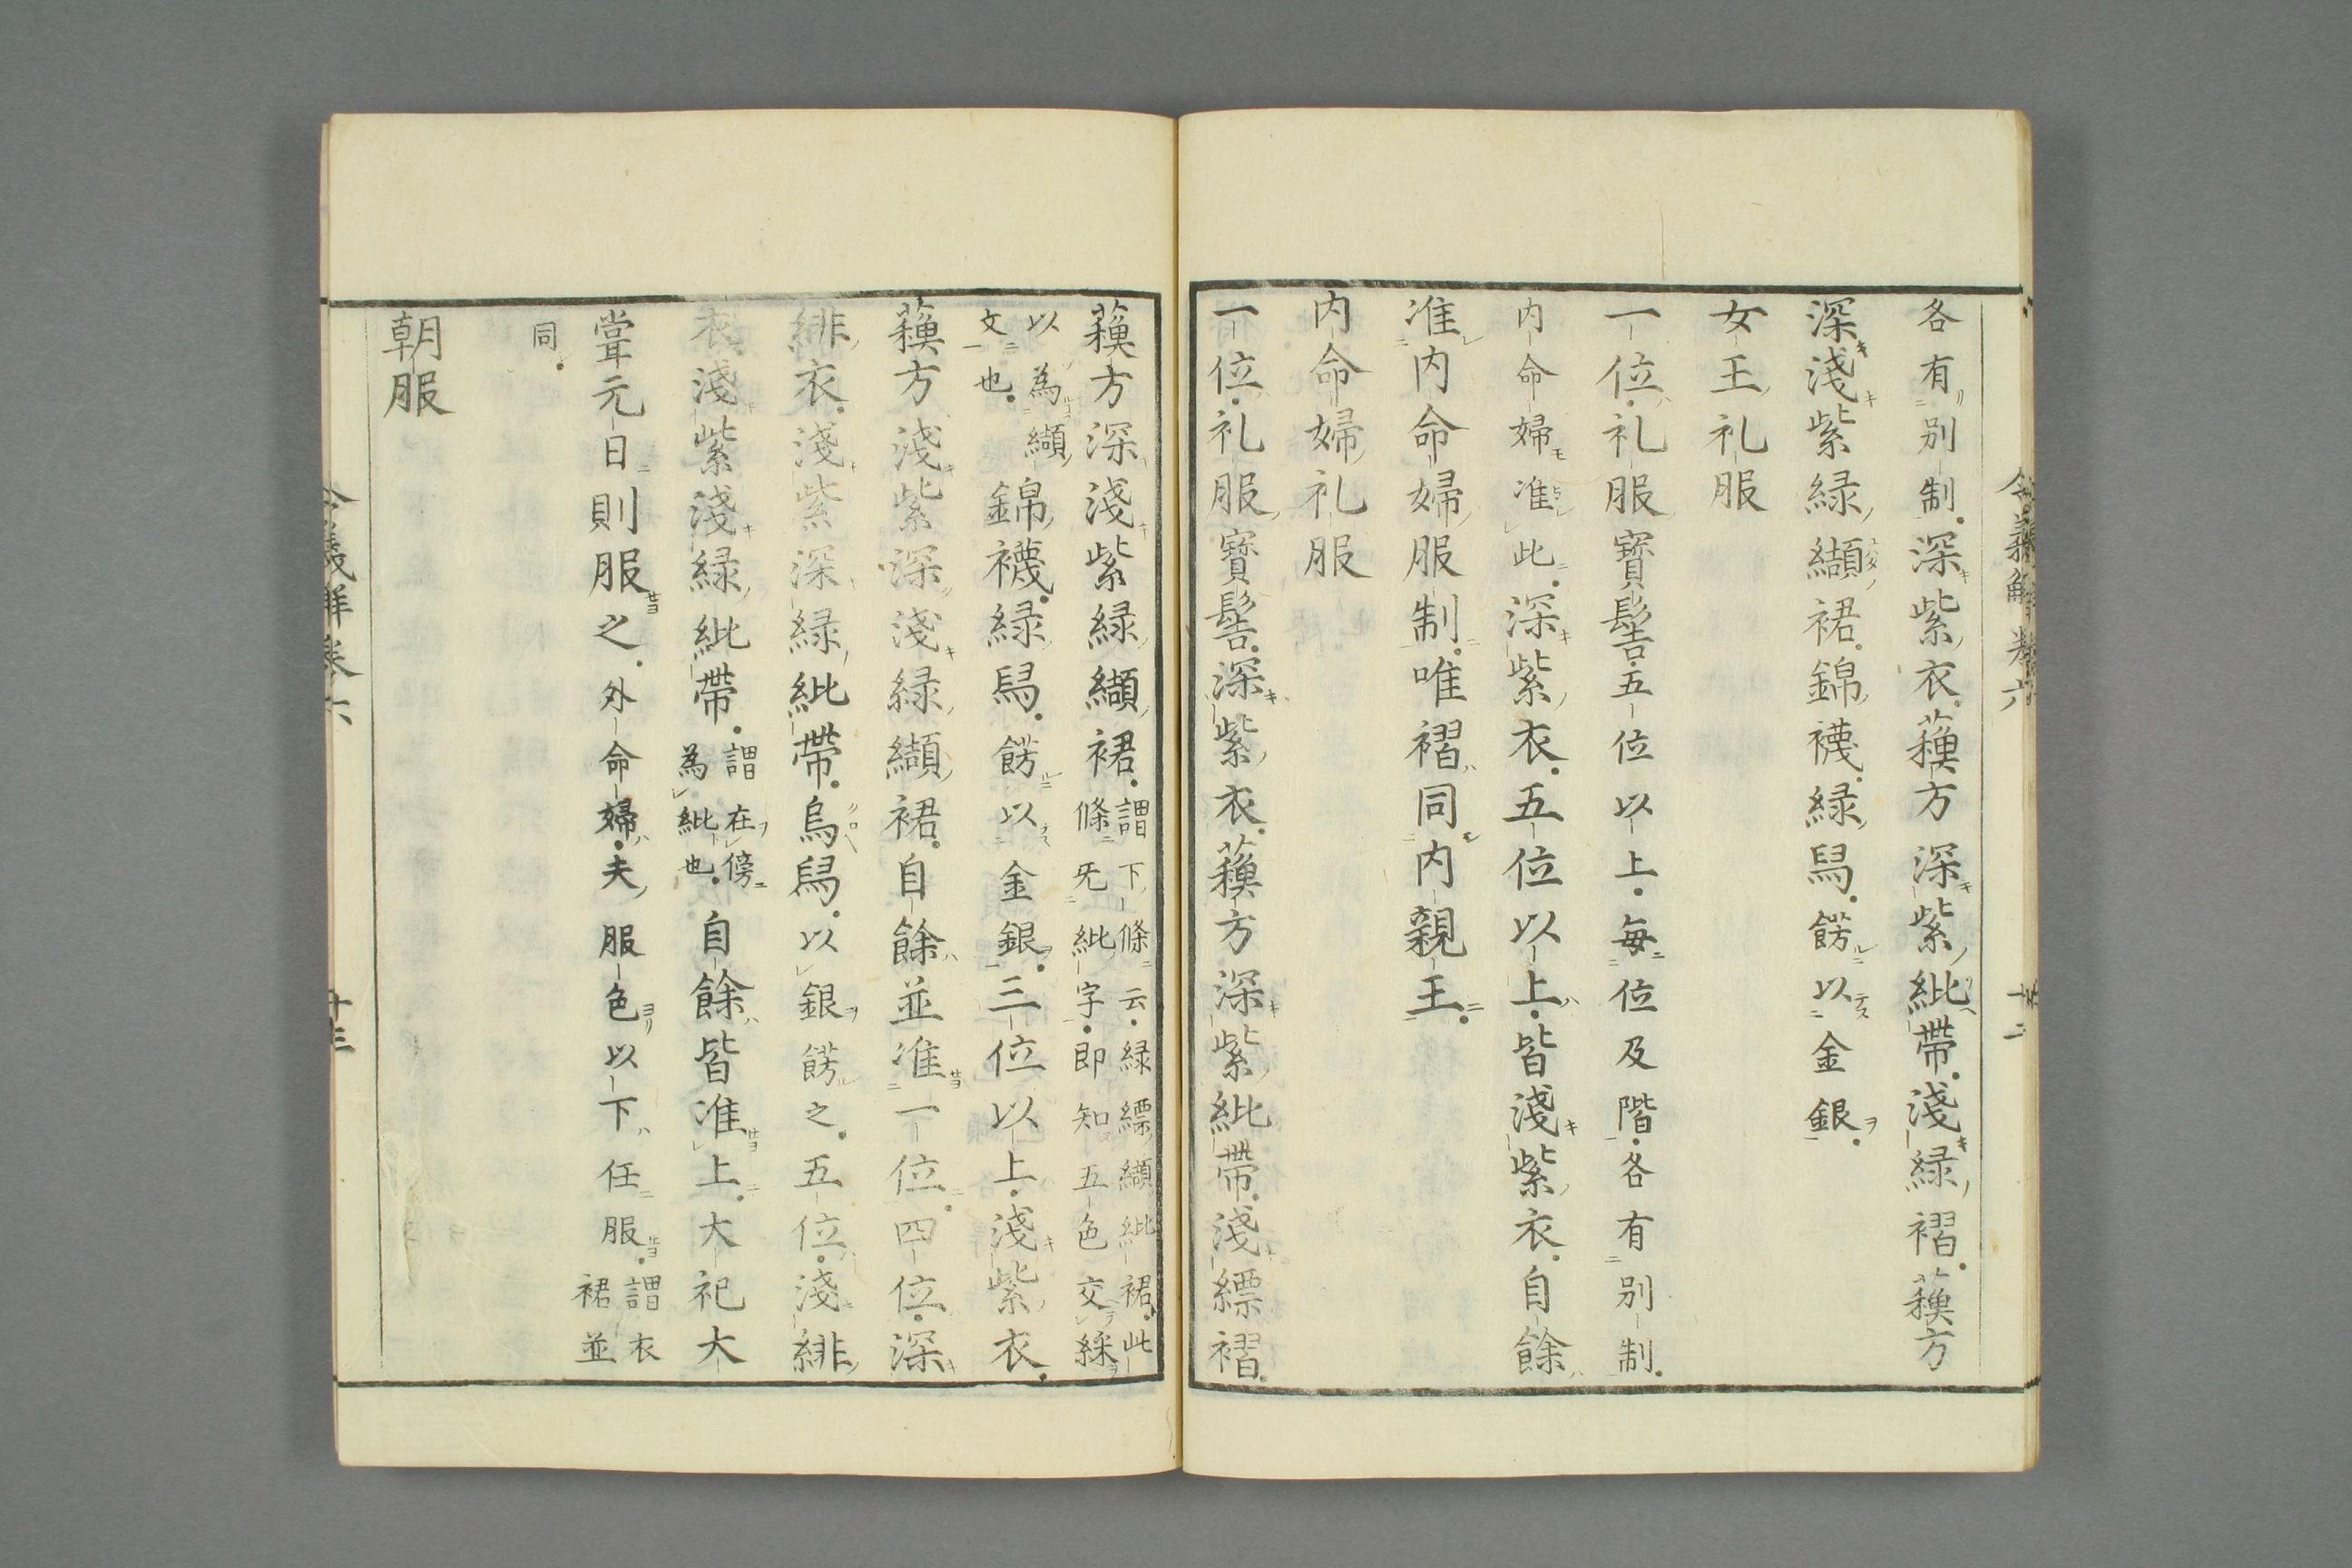 令義解巻六
各有別制。深紫衣。蘓方深紫紕帶。淺緑褶。蘓方
深淺紫緑纈裙。錦襪。緑舄。餝以金銀。
女王礼服
一位。礼服寳髻。五位以上。毎位及階。各有別制。
内命婦准此。深紫衣。五位以上。皆淺紫衣。自餘
准内命婦服制。唯褶同内親王。
内命婦礼服
一位。礼服寳髻。深紫衣。蘓方深紫紕帶。淺縹褶。
蘓方深淺紫緑纈裙。
謂下條云。緑縹纈紕裙。此
條旡紕字。即知五色交綵
以為纈
文也。
錦襪。緑舄。餝以金銀。三位以上。淺紫衣。
蘓方淺紫深淺緑纈裙。自餘並准一位。四位。深
緋衣。淺紫深緑紕帶。烏舄。以銀餝之。五位。淺緋
衣。淺紫淺緑紕帶。
謂在傍
為紕也。
自餘皆准上。大祀大
甞元日則服之。外命婦。夫服色以下任服。
謂衣
裙並
同。
朝服
令義解巻六
十三